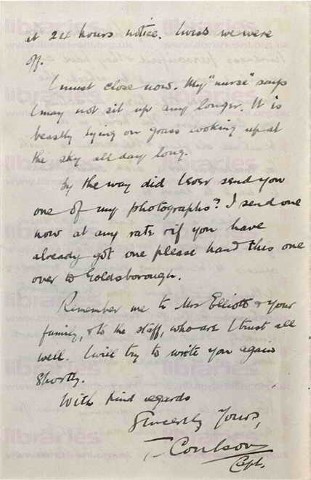 at 24 hours notice. Wish we were
off.
I must close now. My "nurse" says
I may not sit up any longer. It is
beastly lying on grass looking up at
the sky all day long.
By the way did I ever send you
one of my photographs? I send one
now at any rate & if you have
already got one please hand this one
over to Goldsborough.
Remember me to Mrs Elliott & your
family, & to the staff, who are I trust all
well. Will try to write you again
shortly.
With kind regards
Sincerely Yours,
T Coulson
Capt.